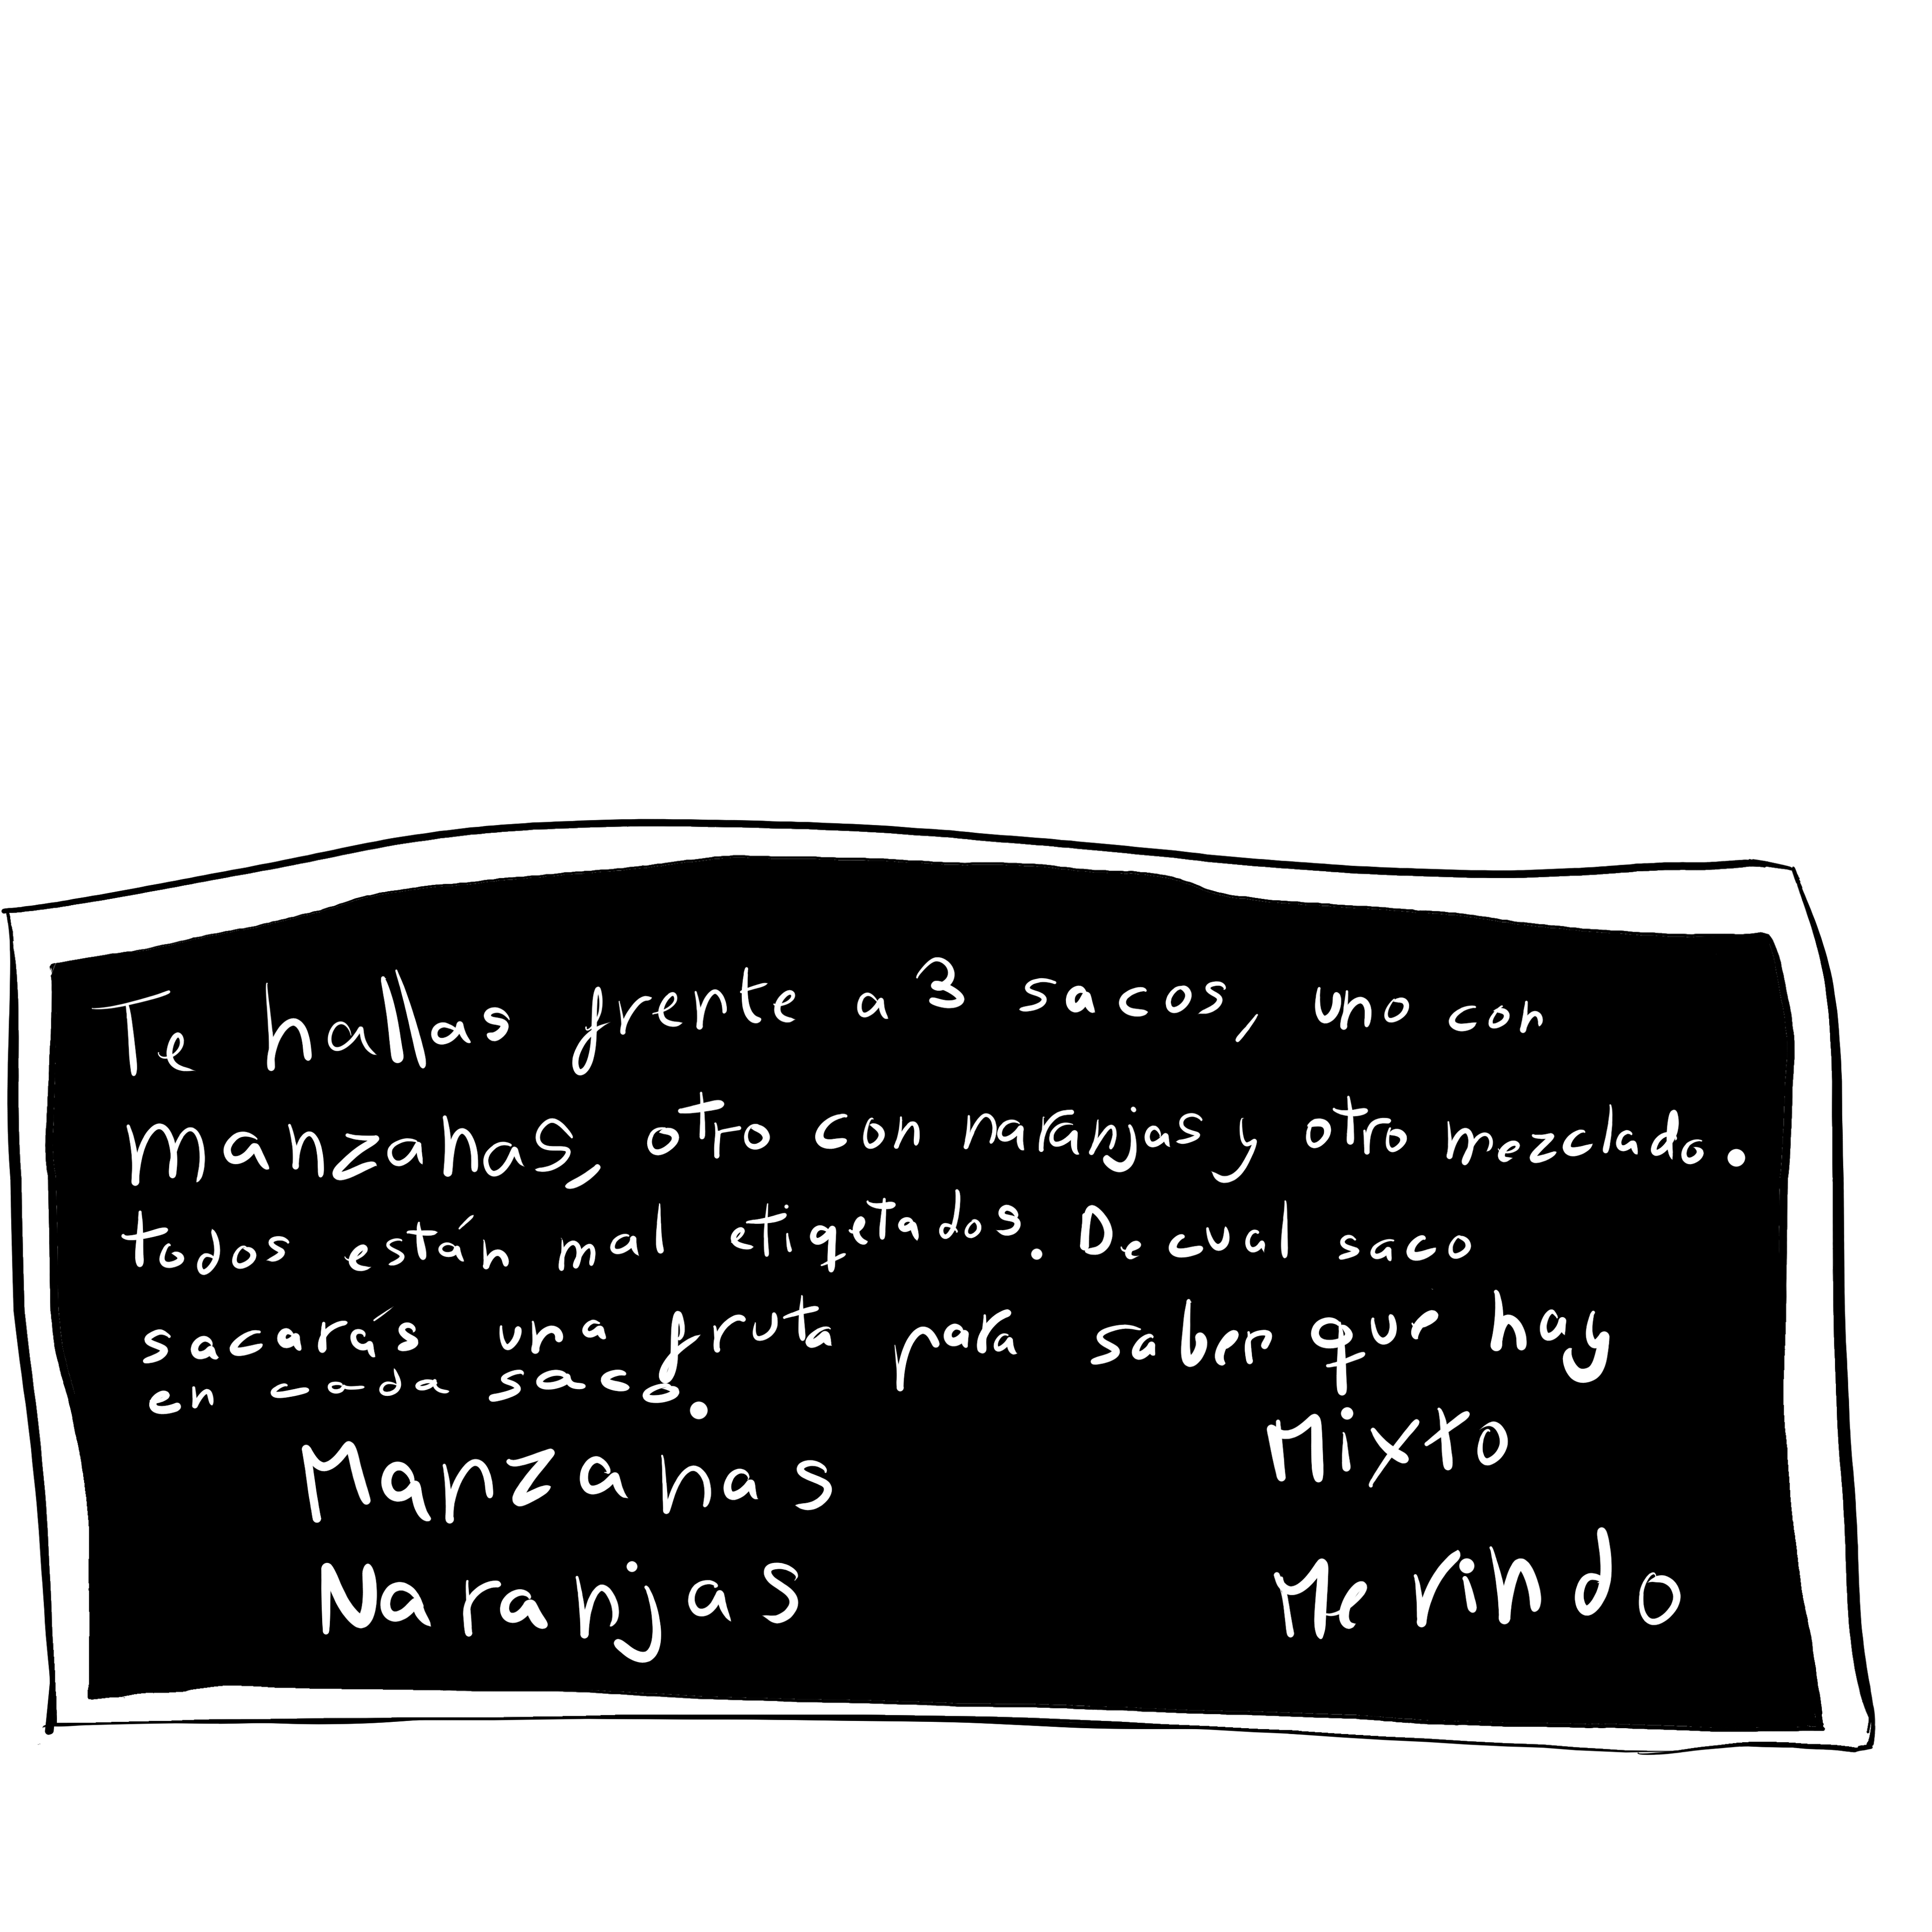 Te hallas frente a 3 sacos, uno con
manzanas, otro con naranjas y otro mezclado.
todos están mal etiqetados. De cual saco
sacarás una fruta para saber que hay
en cada saco.
Manzanas Mixto
Naranjas Me rindo